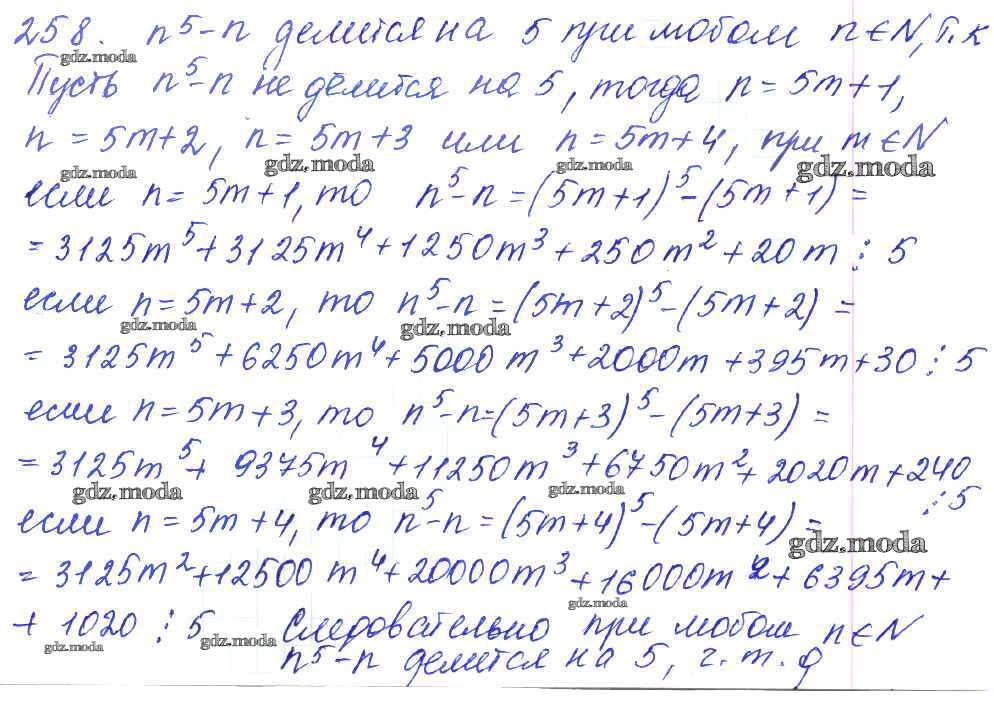 258. n⁵-n делится на 5 при любом n∈N, т.к
gdz.moda
Пусть n⁵-n не делится на 5, тогда n=5m+1,
n=5m+2, n=5m+3 или n=5m+4, при m∈N
gdz.moda gdz.moda gdz.moda gdz.moda
если n=5m+1, то n⁵-n=(5m+1)⁵-(5m+1)=
=3125m⁵+3125m⁴+1250m³+250m²+20m ⋮ 5
если n=5m+2, то n⁵-n=(5m+2)⁵-(5m+2)=
gdz.moda gdz.moda
=3125m⁵+6250m⁴+5000m³+2000m+395m+30 ⋮ 5
если n=5m+3, то n⁵-n=(5m+3)⁵-(5m+3)=
=3125m⁵+9375m⁴+11250m³+6750m²+2020m+240
gdz.moda gdz.moda gdz.moda ⋮ 5
если n=5m+4, то n⁵-n=(5m+4)⁵-(5m+4)=
gdz.moda
=3125m²+12500m⁴+20000m³+16000m²+6395m+
gdz.moda
+1020 ⋮ 5 Следовательно при любом n∈N
gdz.moda gdz.moda
n⁵-n делится на 5, ч.т.д